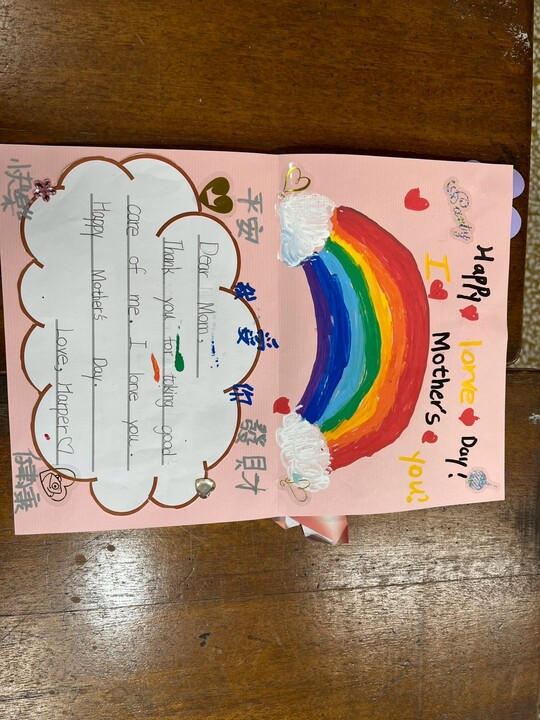 Party
Happy Mother's Day!
I love you
平安
發財
我愛你
Dear Mom,
Thank you for taking good
care of me. I love you.
Happy Mother's Day.
Love, Harper
快樂
健康